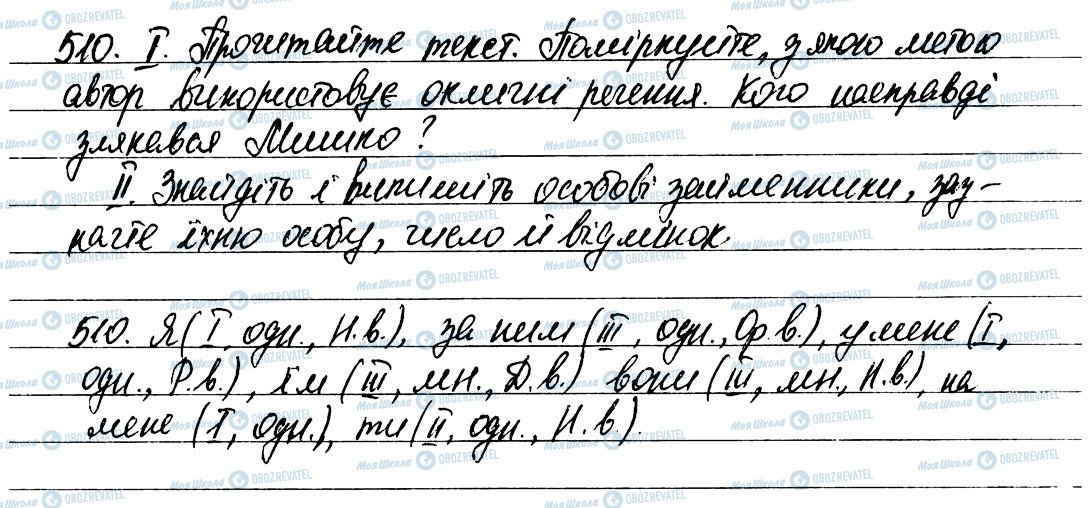 510. I. Прочитайте текст. Поміркуйте, з якою метою
автор використовує окличні речення. Кого насправді
злякався Мишко?
II. Знайдіть і випишіть особові займенники, зазу-
начте їхню особу, число й відмінок.
510. Я (I, одн., Н.в.), за ним (III, одн., Ор.в.), у мене (I,
одн., Р.в.), їм (III, мн., Д.в.) вони (III, мн., Н.в.), на
мене (I, одн.), ти (II, одн., Н.в.).